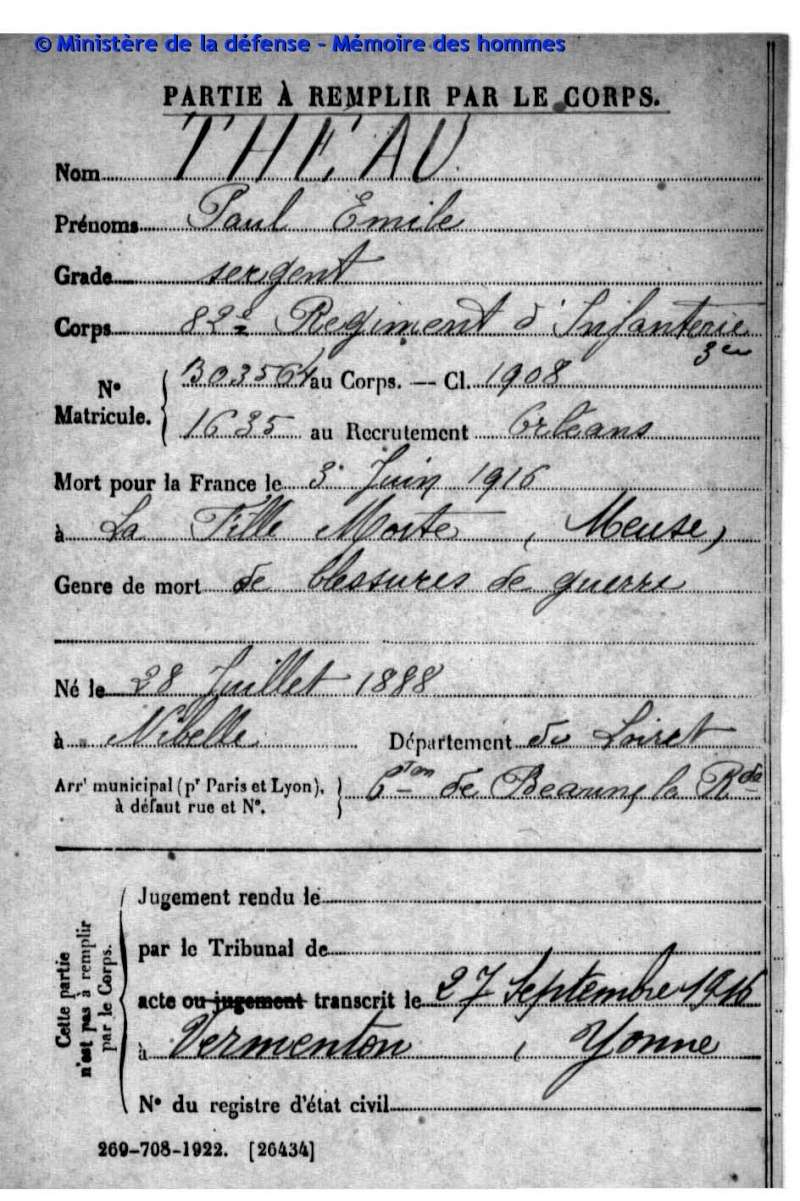 © Ministère de la défense - Mémoire des hommes
PARTIE À REMPLIR PAR LE CORPS.
Nom THÉAU
Prénoms Paul Emile
Grade sergent
Corps 82e Regiment d'Infanterie
3e Cie
N° Matricule. B03564 au Corps. — Cl. 1908
1635 au Recrutement Orléans
Mort pour la France le 3 Juin 1916
à La Fille Morte (Meuse)
Genre de mort de blessures de guerre
Né le 28 Juillet 1888
à Nibelle Département du Loiret
Arrt municipal (pr Paris et Lyon), à défaut rue et N°. Cton de Beaune la Rde
Cette partie n'est pas à remplir par le Corps.
Jugement rendu le
par le Tribunal de
acte ou jugement transcrit le 27 Septembre 1916
à Vermenton, Yonne
N° du registre d'état civil
269-708-1922. [26434]